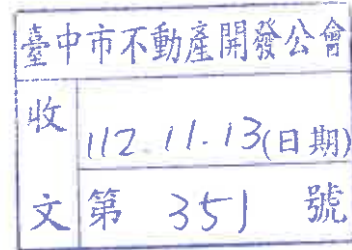 臺中市不動產開發公會
收文
112.11.13(日期)
第 351 號